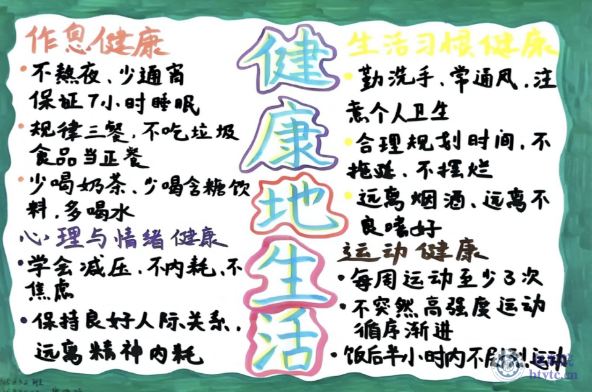 作息健康
不熬夜、少通宵
保证7小时睡眠
规律三餐,不吃垃圾
食品当正餐
少喝奶茶、少喝含糖饮
料,多喝水
心理与情绪健康
学会减压、不内耗、不
焦虑
保持良好人际关系,
远离精神内耗
健康地生活
生活习惯健康
勤洗手、常通风、注
意个人卫生
合理规划时间,不
拖延、不摆烂
远离烟酒、远离不
良嗜好
运动健康
每周运动至少3次
不突然高强度运动
循序渐进
饭后半小时内不剧烈运动
btytc.cn